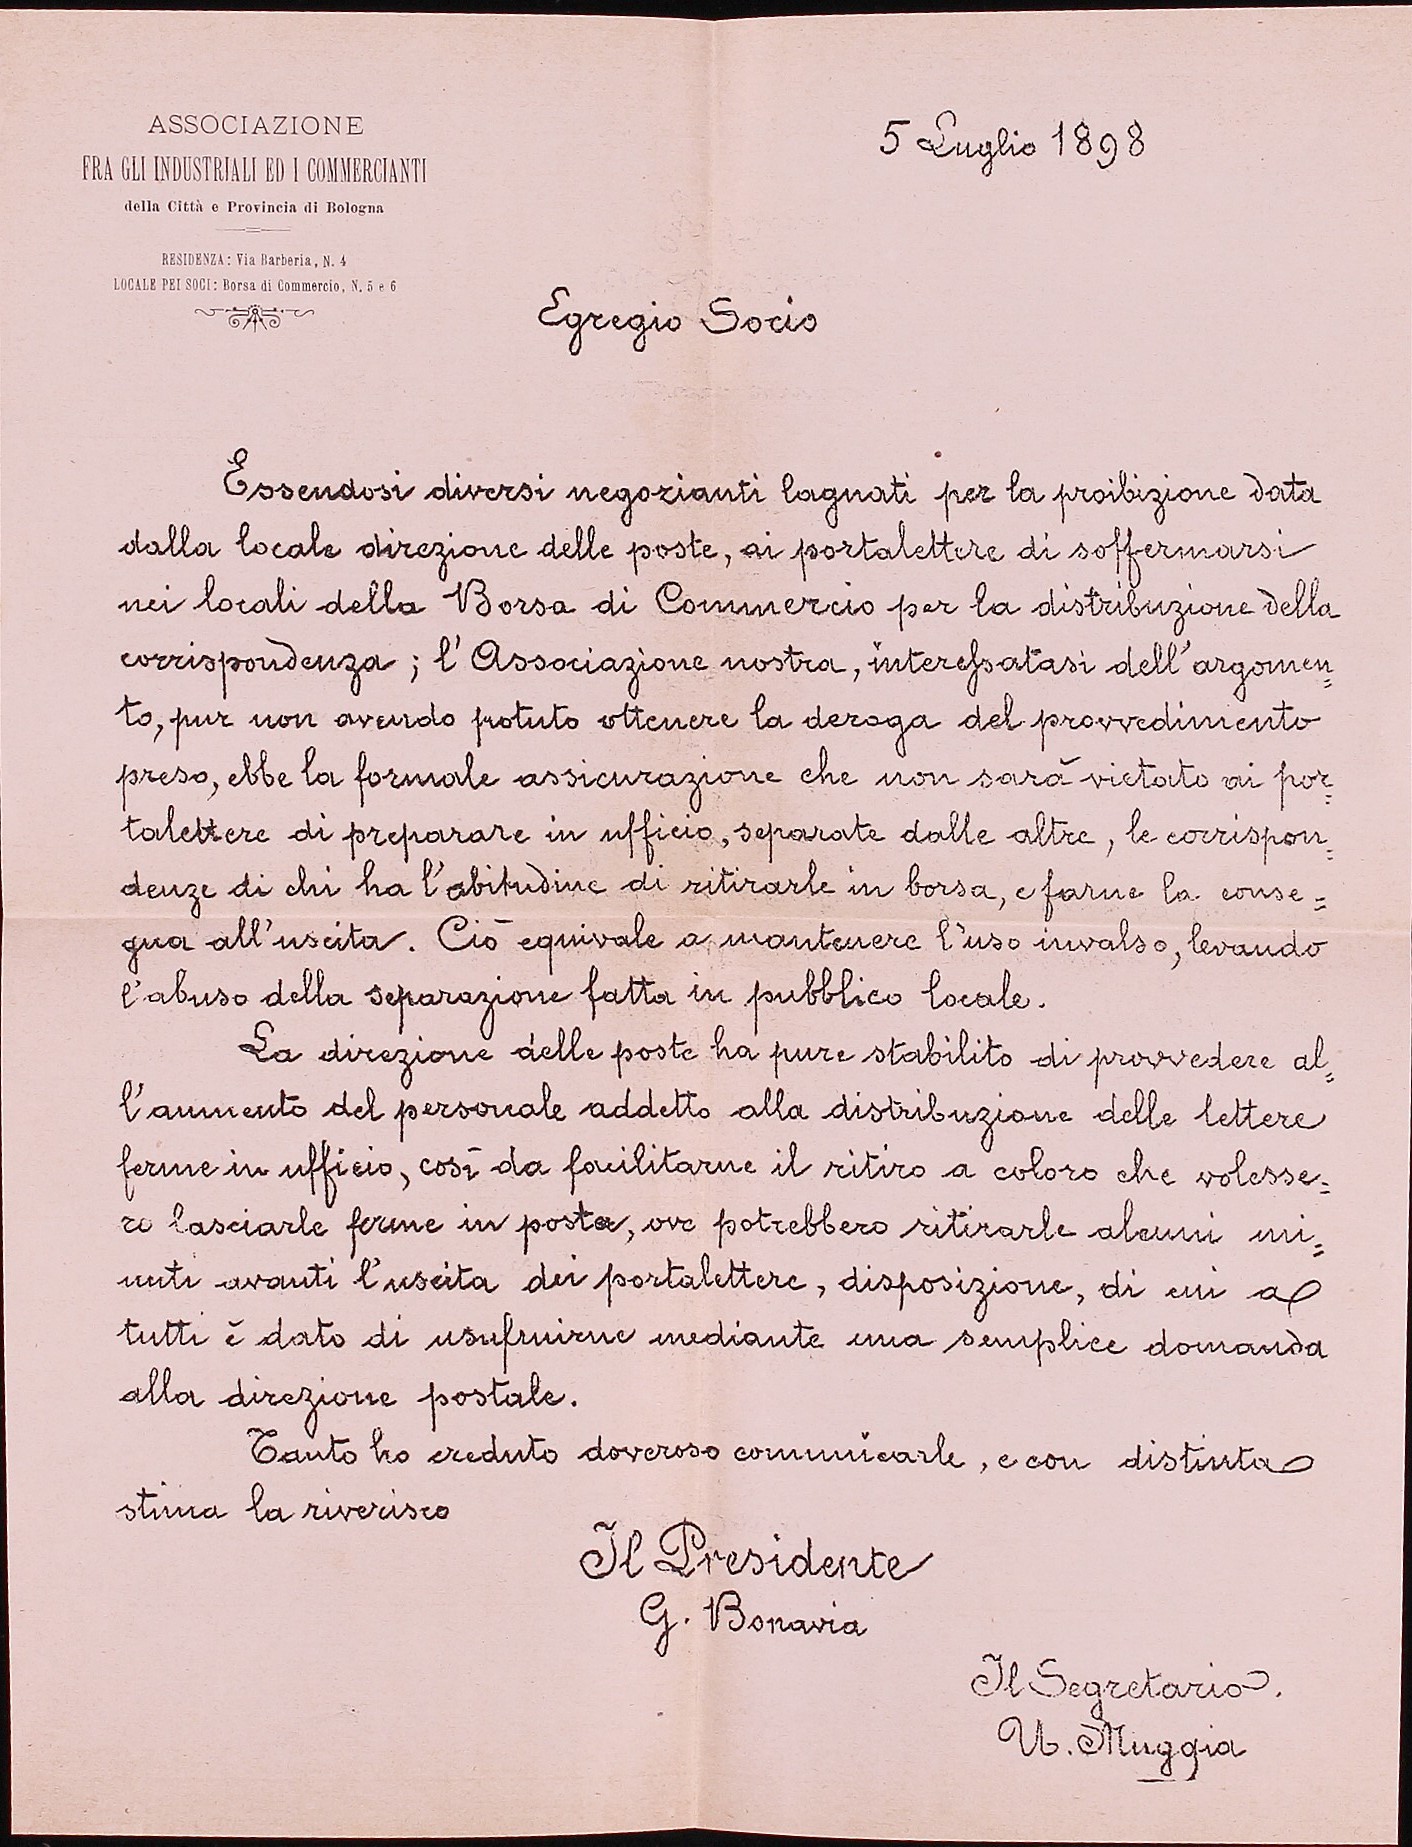 ASSOCIAZIONE
FRA GLI INDUSTRIALI ED I COMMERCIANTI
della Città e Provincia di Bologna
RESIDENZA: Via Barberia, N. 4
LOCALE PEI SOCI: Borsa di Commercio, N. 5 e 6
5 Luglio 1898
Egregio Socio
Essendosi diversi negozianti lagnati per la proibizione data
dalla locale direzione delle poste, ai portalettere di soffermarsi
nei locali della Borsa di Commercio per la distribuzione della
corrispondenza; l'Associazione nostra, interessatasi dell'argomen=
to, pur non avendo potuto ottenere la deroga del provvedimento
preso, ebbe la formale assicurazione che non sarà vietato ai por=
talettere di preparare in ufficio, separate dalle altre, le corrispon=
denze di chi ha l'abitudine di ritirarle in borsa, e farne la conse=
gna all'uscita. Ciò equivale a mantenere l'uso invalso, levando
l'abuso della separazione fatta in pubblico locale.
La direzione delle poste ha pure stabilito di provvedere al=
l'aumento del personale addetto alla distribuzione delle lettere
ferme in ufficio, così da facilitarne il ritiro a coloro che volesse=
ro lasciarle ferme in posta, ove potrebbero ritirarle alcuni mi=
nuti avanti l'uscita dei portalettere, disposizione, di cui a
tutti è dato di usufruirne mediante una semplice domanda
alla direzione postale.
Tanto ho creduto doveroso comunicarle, e con distinta
stima la riverisco
Il Presidente
G. Bonavia
Il Segretario.
U. Muggia